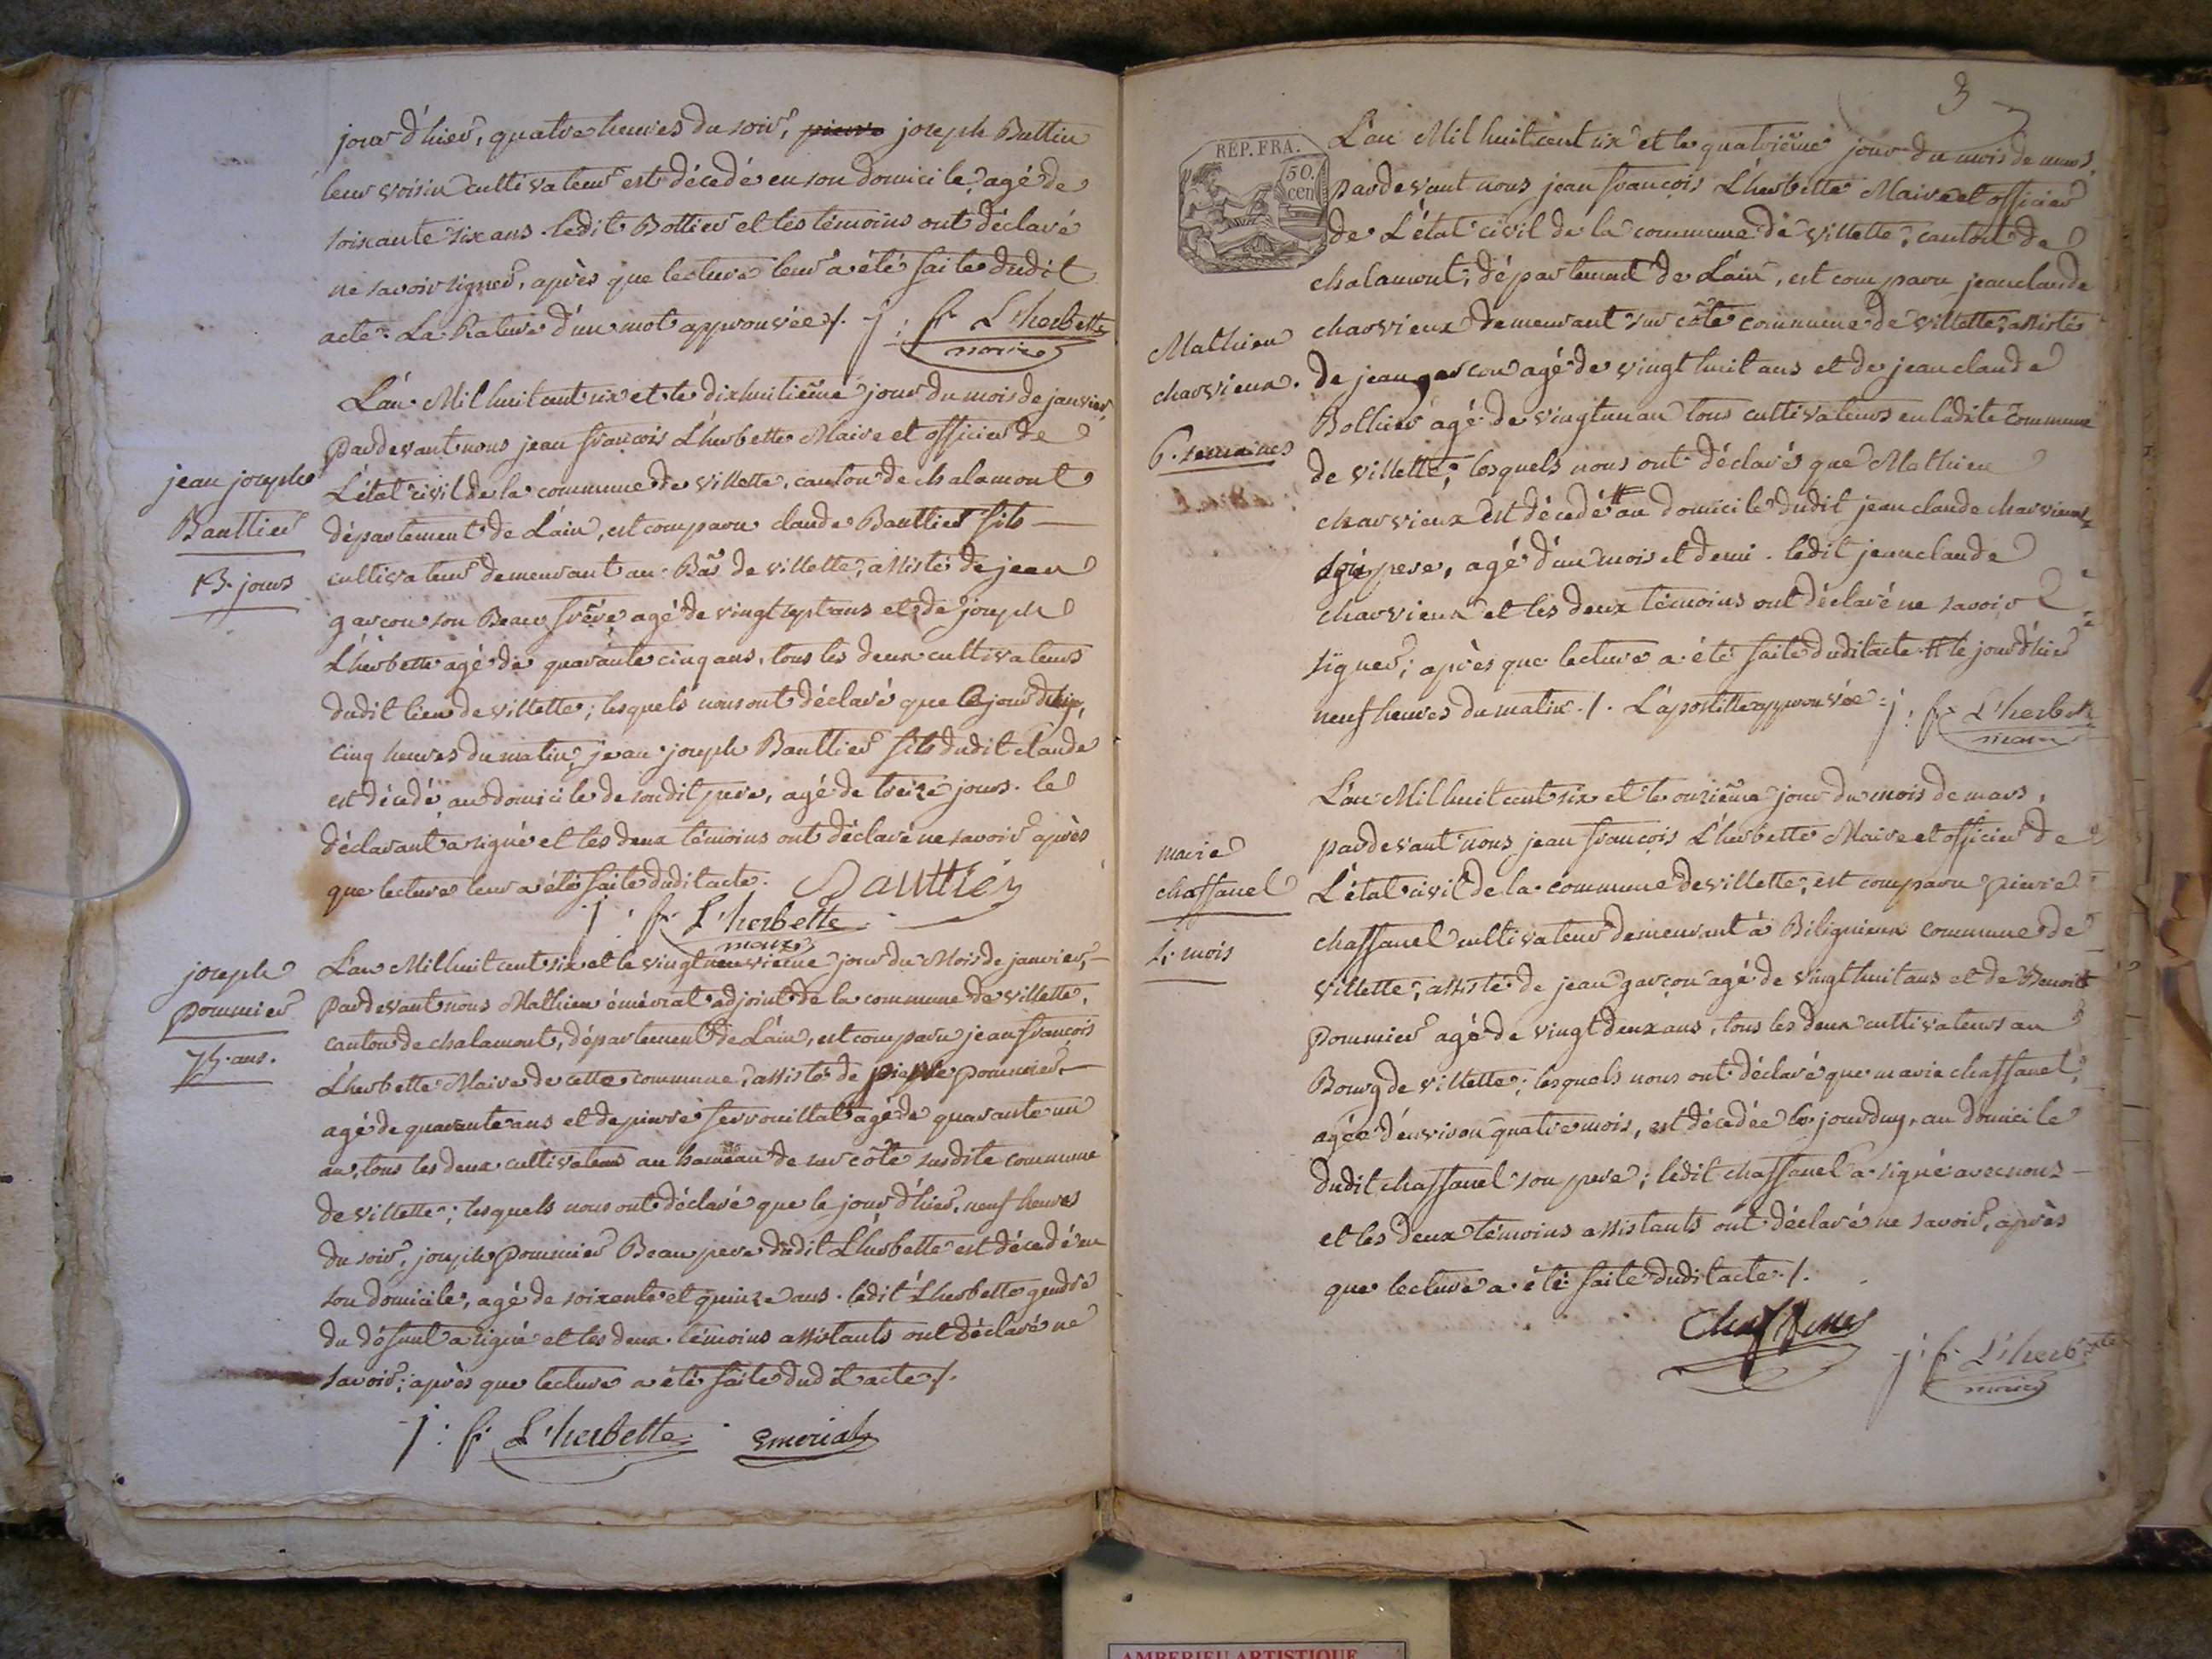 jour d'hier, quatre heures du soir, pierre joseph Buttin
leur voisin cultivateur est décedé en son domicile, agé de
soixante six ans. ledit Bottier et les témoins ont déclaré
ne savoir signer, après que lecture leur a été faite dudit
acte. La Rature d'un mot approuvée /. j: f: L'herbette
maire
jean joseph
Bauttier
13. jours
L'an Mil huit cent six et le dixhuitième jour du mois de janvier
pardevant nous jean françois L'herbette Maire et officier de
L'état civil de la commune de villette, canton de chalamont
département de L'ain, est comparu claude Bauttier fils
cultivateur demeurant au Bas de villette, assisté de jean
garcon son Beau frère agé de vingt sept ans et de joseph
L'herbette agé de quarante cinq ans, tous les deux cultivateurs
dudit lieu de villette; lesquels nous ont déclaré que le jour
cinq heures du matin, jean joseph Bauttier fils dudit claude
est décedé au domicile de sondit pere, agé de treize jours. le
déclarant a signé et les deux témoins ont déclaré ne savoir après
que lecture leur a été faite dudit acte. Bauttier
j: f: L'herbette
maire
joseph
pommier
75. ans.
L'an Mil huit cent six et le vingt neuvième jour du Mois de janvier,
pardevant nous Mathieu émérial adjoint de la commune de villette,
canton de chalamont, département de L'ain, est comparu jean françois
Lherbette Maire de cette commune, assisté de pierre pommier
agé de quarante ans et de pierre ferrouillat agé de quarante un
an, tous les deux cultivateurs au hameau de sur côte susdite commune
de villette; lesquels nous ont déclaré que le jour d'hier, neuf heures
du soir, joseph pommier Beau pere dudit L'herbette est décedé en
son domicile, agé de soixante et quinze ans. ledit Lherbette gendre
du défunt a signé et les deux témoins assistants ont déclaré ne
savoir; après que lecture a été faite dudit acte /.
j: f: L'herbette emerial
3
RÉP. FRA.
50.
cen
Mathieu
charvieux.
6. semaines
L'an Mil huit cent six et le quatrième jour du mois de mars,
pardevant nous jean françois L'herbette Maire et officier
de L'état civil de la commune de villette, canton de
chalamont, département de L'ain, est comparu jean claude
charvieux demeurant sur côte commune de villette, assisté
de jean garcon agé de vingt huit ans et de jean claude
Bottier agé de vingt un an tous cultivateurs en ladite commune
de villette; lesquels nous ont déclarés que Mathieu
charvieux est décedé # au domicile dudit jean claude charvieux
son pere, agé d'un mois et demi. ledit jean claude
charvieux et les deux témoins ont déclaré ne savoir
signer; après que lecture a été faite dudit acte # le jour d'hier
neuf heures du matin. /. L'apostille approuvée = j: f: L'herbette
maire
marie
chaffanel
4. mois
L'an Mil huit cent six et le onzième jour du mois de mars,
pardevant nous jean françois L'herbette Maire et officier de
L'état civil de la commune de villette, est comparu pierre
chaffanel cultivateur demeurant à Biligneux commune de
villette, assisté de jean garçon agé de vingt huit ans et de Benoit
pommier agé de vingt deux ans, tous les deux cultivateurs au
Bourg de villette; lesquels nous ont déclaré que marie chaffanel,
agée d'environ quatre mois, est décedée le jourduy, au domicile
dudit chaffanel son pere; ledit chaffanel a signé avec nous
et les deux témoins assistants ont déclaré ne savoir, après
que lecture a été faite dudit acte /.
j: f: L'herbette
maire
AMBERIEU ARTISTIQUE